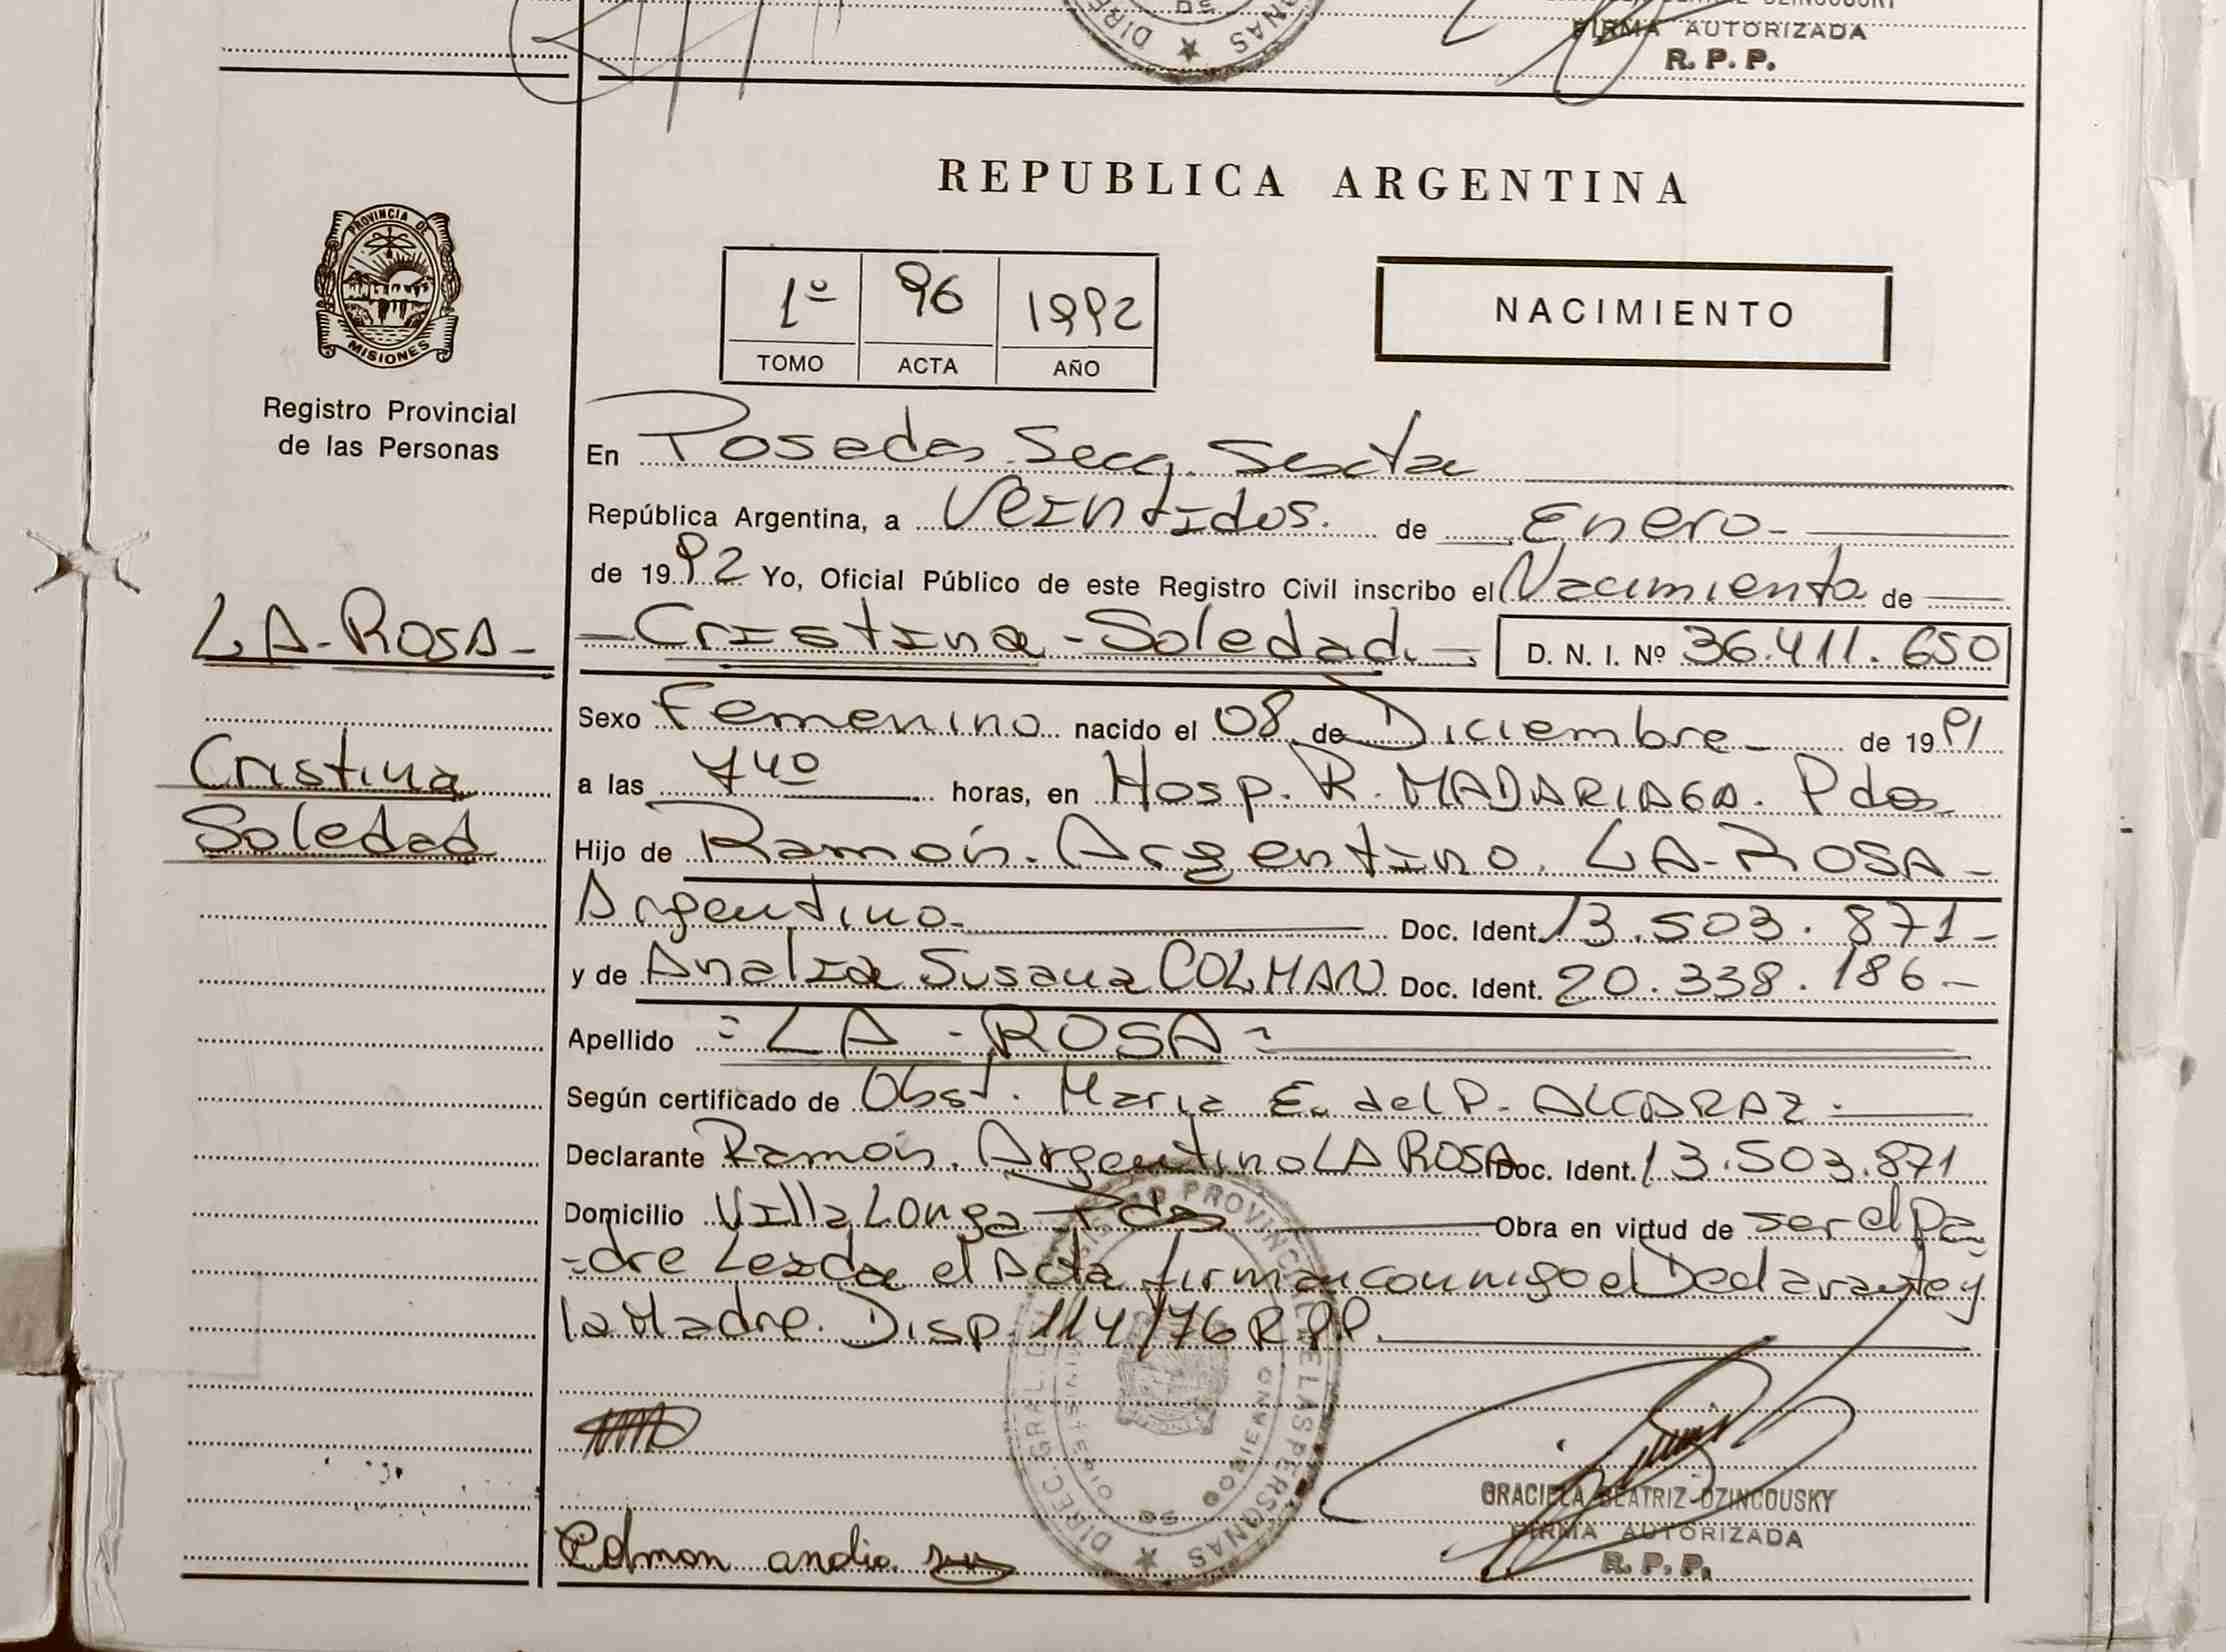 FIRMA AUTORIZADA
R. P. P.
REPUBLICA ARGENTINA
PROVINCIA DE
MISIONES
Registro Provincial
de las Personas
1º 96 1992
TOMO ACTA AÑO
NACIMIENTO
En Posadas Secc. Sexta
República Argentina, a Veintidos. de Enero-
de 1992 Yo, Oficial Público de este Registro Civil inscribo el Nacimiento de
LA-ROSA-
-Cristina-Soledad.- D. N. I. Nº 36.411.650
Sexo Femenino nacido el 08 de Diciembre- de 1991
Cristina
Soledad
a las 7 40 horas, en Hosp. R. MADARIAGA. Pdas
Hijo de Ramón. Argentino. LA-ROSA-
Argentino- Doc. Ident. 13.503.871-
y de Analia Susana COLMAN Doc. Ident. 20.338.186-
Apellido =LA-ROSA=
Según certificado de Obst. Maria E. del P. ALCARAZ.
Declarante Ramón. Argentino LA ROSA Doc. Ident. 13.503.871
Domicilio Villa Longa Pdas Obra en virtud de ser el Pa
-dre Leida el Acta firman conmigo el Declarante y
la Madre. Disp. 114/76 R.P.P.
GRACIELA BEATRIZ DZINCOUSKY
FIRMA AUTORIZADA
R. P. P.
Colman analia